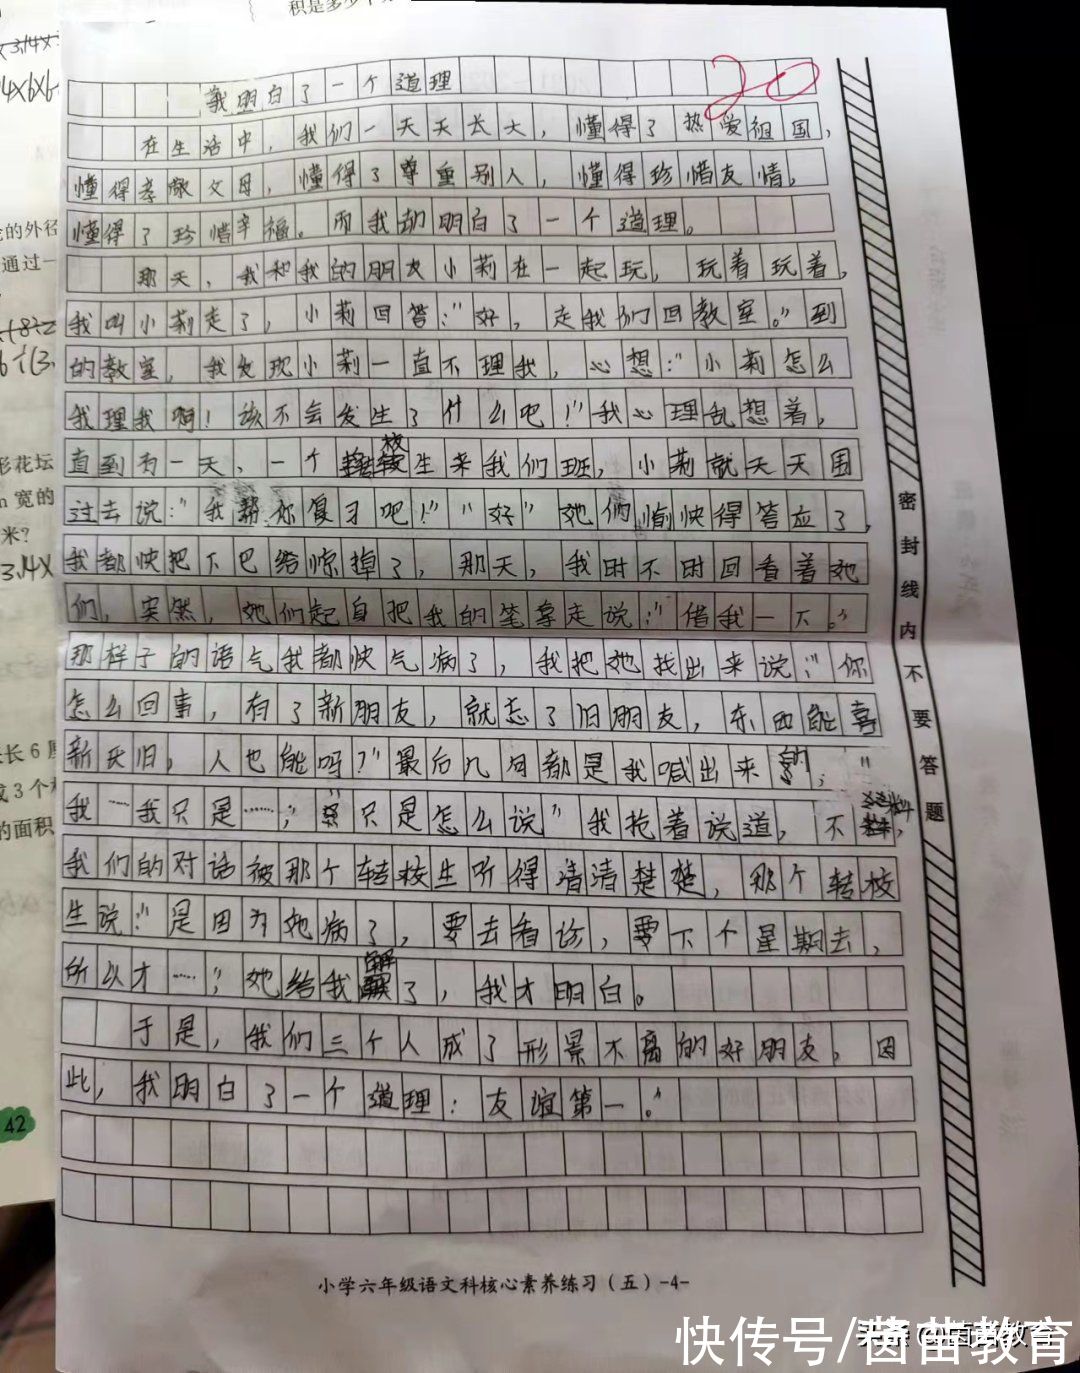 积是多少
我明白了一个道理
20
在生活中，我们一天天长大，懂得了热爱祖国，
懂得孝敬父母，懂得了尊重别人，懂得珍惜友情，
懂得了珍惜幸福。而我却明白了一个道理。
那天，我和我的朋友小莉在一起玩，玩着玩着，
我叫小莉走了，小莉回答："好，走我们回教室。"到
的教室，我发现小莉一直不理我，心想："小莉怎么
我理我啊！该不会发生了什么吧！"我心理乱想着，
直到有一天，一个转校生来我们班，小莉就天天围
过去说："我帮你复习吧！""好"她俩愉快得答应了，
我都快把下巴给惊掉了，那天，我时不时回看着她
们，突然，她们起自把我的笔拿走说："借我一下。"
那样子的语气我都快气病了，我把她找出来说："你
怎么回事，有了新朋友，就忘了旧朋友，东西能喜
新厌旧，人也能吗？"最后几句都是我喊出来的；"
我……我只是……；"只是怎么说"我抢着说道，不
我们的对话被那个转校生听得清清楚楚，那个转校
生说："是因为她病了，要去看诊，要下个星期去，
所以才……；她给我解了，我才明白。
于是，我们三个人成了形景不离的好朋友，因
此，我明白了一个道理：友谊第一。"
密封线内不要答题
小学六年级语文科核心素养练习（五）-4-
的外径
通过一
形花坛
宽的
米？
3.14×
长6
成3个
的面积
42
快传号/茵苗教育
头条 @茵苗教育